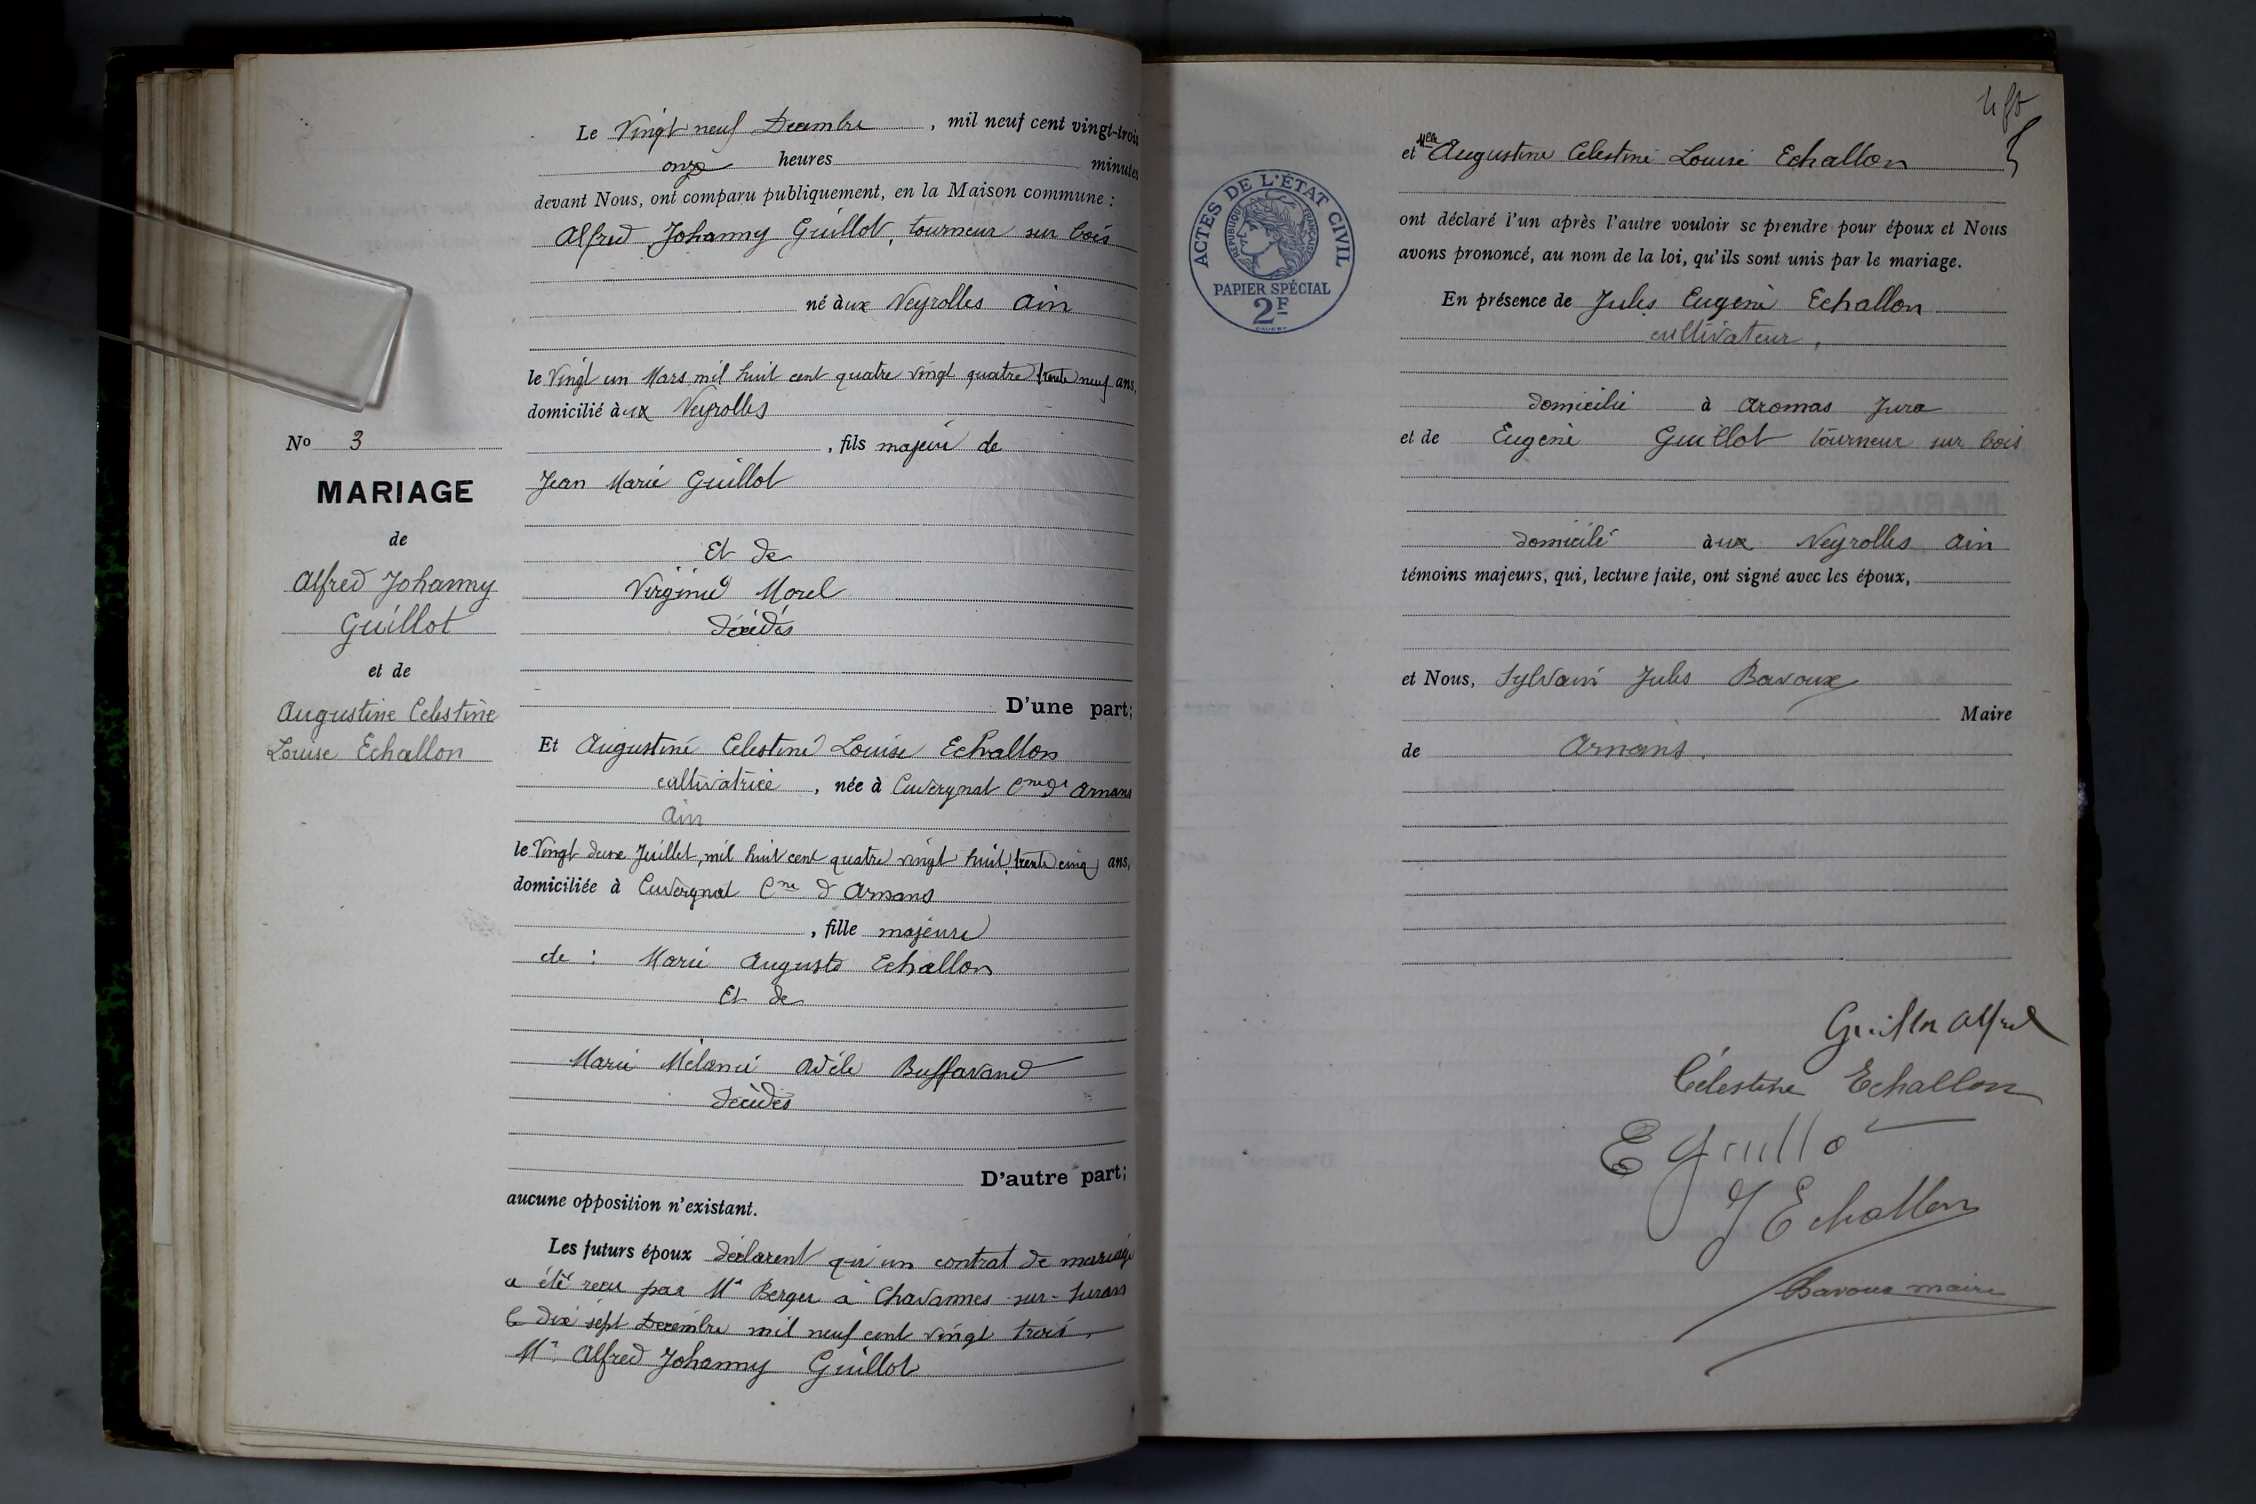 Le Vingt neuf Decembre, mil neuf cent vingt-trois
onze heures minutes
devant Nous, ont comparu publiquement, en la Maison commune :
Alfred Johanny Guillot, tourneur sur bois
né aux Neyrolles Ain
le Vingt un Mars mil huit cent quatre vingt quatre trente neuf ans,
domicilié aux Neyrolles
, fils majeur de
Jean Marie Guillot
Et de
Virginie Morel
décédés
D'une part;
Nº 3
MARIAGE
de
Alfred Johanny
Guillot
et de
Augustine Celestine
Louise Echallon
Et Augustine Celestine Louise Echallon
cultivatrice, née à Cuvergnat Cne d' Arnans
Ain
le Vingt deux Juillet, mil huit cent quatre vingt huit, trente cinq ans,
domiciliée à Cuvergnat Cne d Arnans
, fille majeure
de : Marie Auguste Echallon
Et de
Marie Mélanie Adèle Buffavand
décédés
D'autre part;
aucune opposition n'existant.
Les futurs époux déclarent qu'un contrat de mariage
a été reçu par Me Berger à Chavannes-sur-Suran
le dix sept Decembre mil neuf cent vingt trois,
Mr Alfred Johanny Guillot
et Melle Augustine Celestine Louise Echallon
ont déclaré l'un après l'autre vouloir se prendre pour époux et Nous
avons prononcé, au nom de la loi, qu'ils sont unis par le mariage.
ACTES DE L'ÉTAT CIVIL
RÉPUBLIQUE FRANÇAISE
PAPIER SPÉCIAL
2F
En présence de Jules Eugène Echallon
cultivateur,
domicilié à Aromas Jura
et de Eugène Guillot tourneur sur bois
domicilié aux Neyrolles Ain
témoins majeurs, qui, lecture faite, ont signé avec les époux,
et Nous, Sylvain Jules Bavoux
Maire
de Arnans.
Guillot Alfred
Célestine Echallon
E Guillot
J Echallon
Bavoux maire